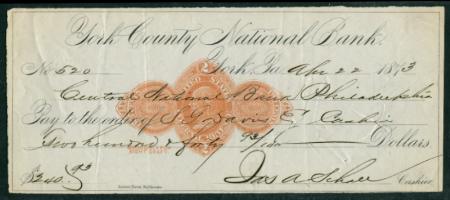 York County National Bank.
No 520 York, Pa. Apr 22 1873
Central National Bank Philadelphia
Pay to the order of S G Davis Cashier
Two hundred & forty 93/100 Dollars
$240.93 Jas A Schall Cashier